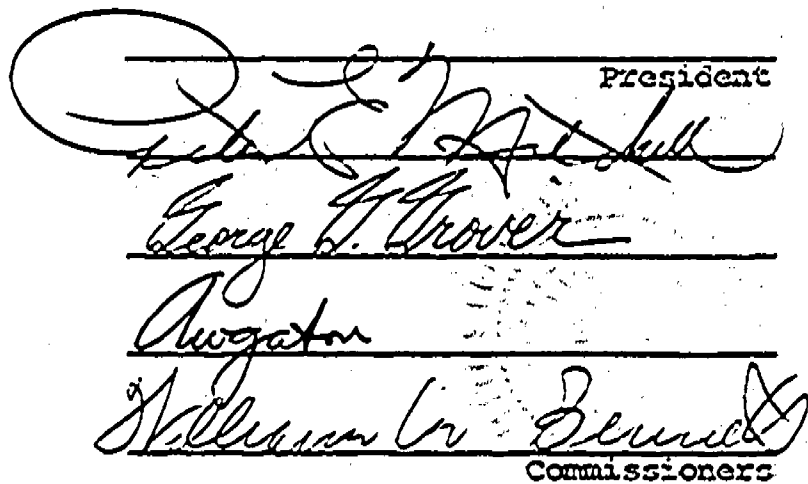 President
Peter E. Mitchell
George G. Grover
William Bennett
Commissioners